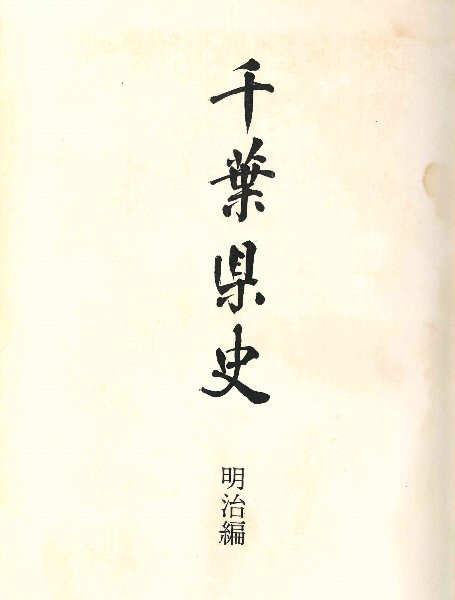 千葉県史
明治編